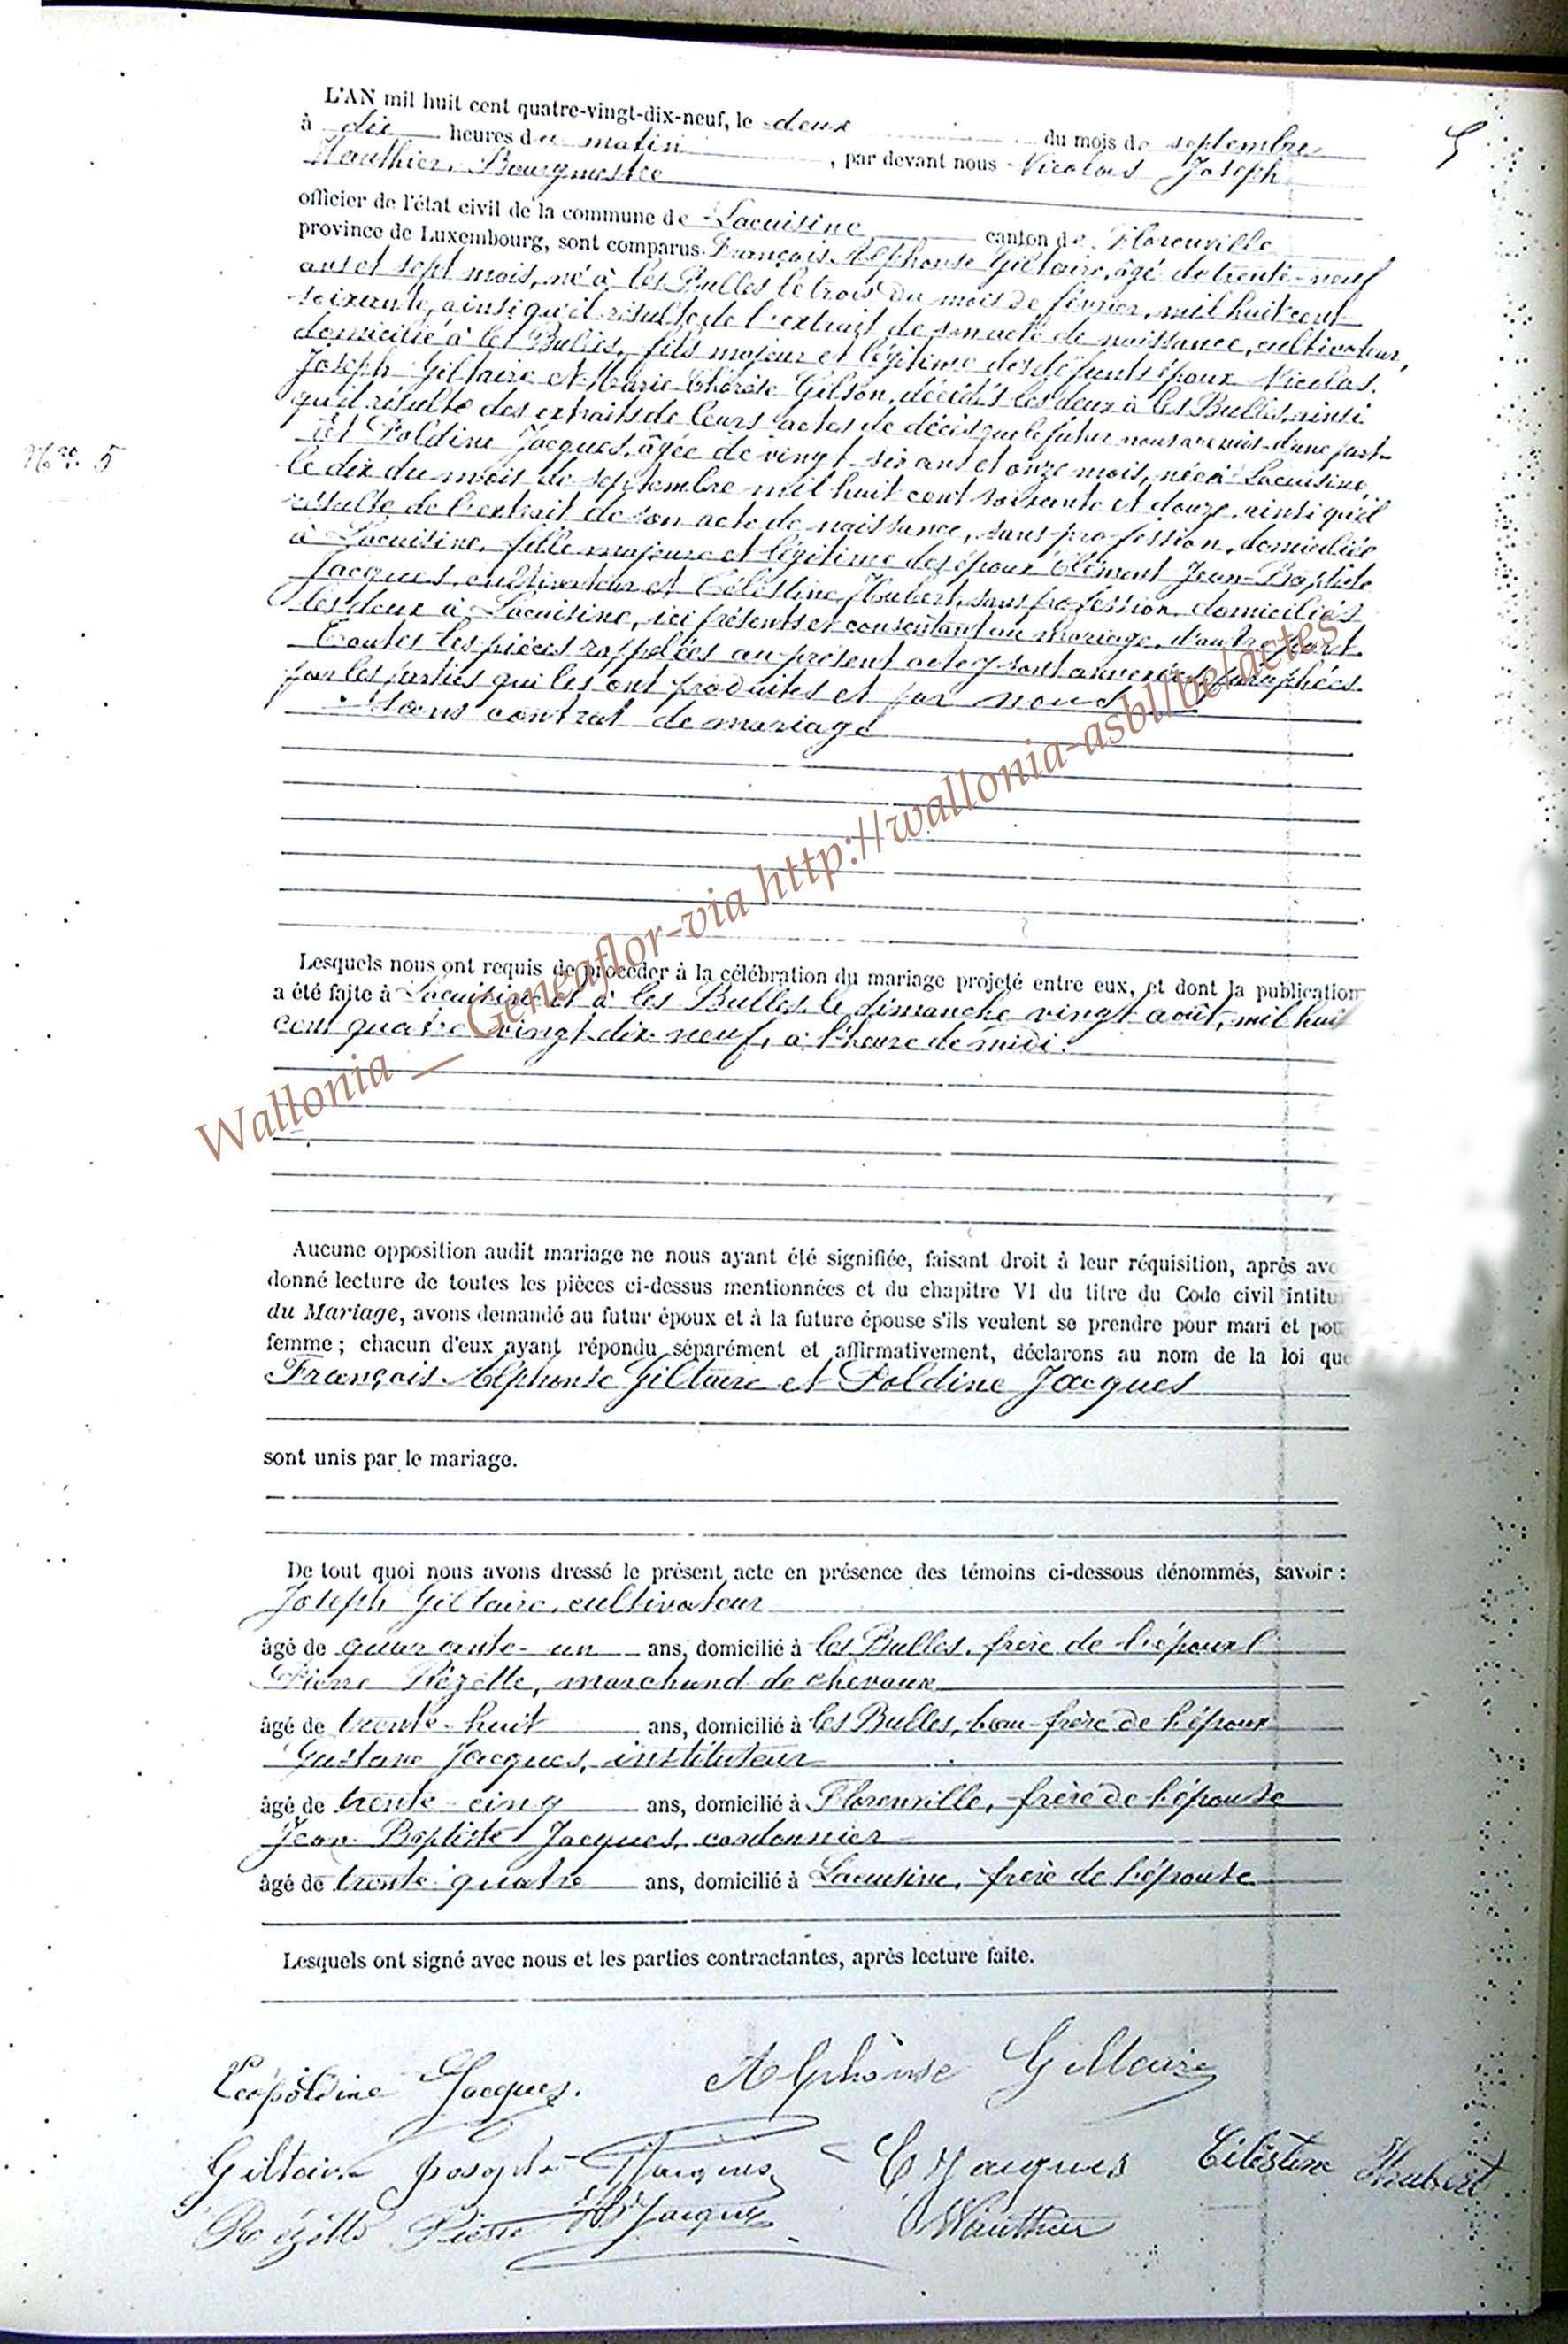 L'AN mil huit cent quatre-vingt-dix-neuf, le deux du mois de septembre
à dix heures du matin, par devant nous Nicolas Joseph
Wauthier, Bourgmestre
officier de l'état civil de la commune de Lacuisine canton de Florenville
province de Luxembourg, sont comparus François Alphonse Giltaire, âgé de trente-neuf
ans et sept mois, né à les Bulles le trois du mois de février, mil huit cent
soixante, ainsi qu'il résulte de l'extrait de son acte de naissance, cultivateur,
domicilié à les Bulles, fils majeur et légitime des défunts époux Nicolas
Joseph Giltaire et Marie Thérèse Gilson, décédés les deux à les Bulles, ainsi
qu'il résulte des extraits de leurs actes de décès que le futur nous a remis d'une part
et Poldine Jacques, âgée de vingt-six ans et onze mois, née à Lacuisine,
Nro. 5
le dix du mois de septembre mil huit cent soixante et douze ainsi qu'il
résulte de l'extrait de son acte de naissance, sans profession, domiciliée
à Lacuisine, fille majeure et légitime des époux Clément Jean-Baptiste
Jacques, cultivateur et Célestine Hubert, sans profession, domiciliés
les deux à Lacuisine, ici présents et consentant au mariage, d'autre part.
Toutes les pièces rappelées au présent acte y sont annexées paraphées
par les parties qui les ont produites et par nous
Sans contrat de mariage
Lesquels nous ont requis de procéder à la célébration du mariage projeté entre eux, et dont la publication
a été faite à Lacuisine et à les Bulles, le dimanche vingt août, mil huit
cent quatre vingt-dix-neuf, à l'heure de midi.
Wallonia _ Geneaflor-via http://wallonia-asbl/be/actes
Aucune opposition audit mariage ne nous ayant été signifiée, faisant droit à leur réquisition, après avo
donné lecture de toutes les pièces ci-dessus mentionnées et du chapitre VI du titre du Code civil intitu
du Mariage, avons demandé au futur époux et à la future épouse s'ils veulent se prendre pour mari et pou
femme ; chacun d'eux ayant répondu séparément et affirmativement, déclarons au nom de la loi que
François Alphonse Giltaire et Poldine Jacques
sont unis par le mariage.
De tout quoi nous avons dressé le présent acte en présence des témoins ci-dessous dénommés, savoir :
Joseph Giltaire, cultivateur
âgé de quarante-un ans, domicilié à les Bulles, frère de l'époux
Pierre Rézette, marchand de chevaux
âgé de trente-huit ans, domicilié à les Bulles, beau-frère de l'époux
Gustave Jacques, instituteur
âgé de trente-cinq ans, domicilié à Florenville, frère de l'épouse
Jean Baptiste Jacques, cordonnier
âgé de trente-quatre ans, domicilié à Lacuisine, frère de l'épouse
Lesquels ont signé avec nous et les parties contractantes, après lecture faite.
Léopoldine Jacques. Alphonse Giltaire
Giltaire Joseph Jacques Jacques Célestine Hubert
Pierre Jacques Wauthier